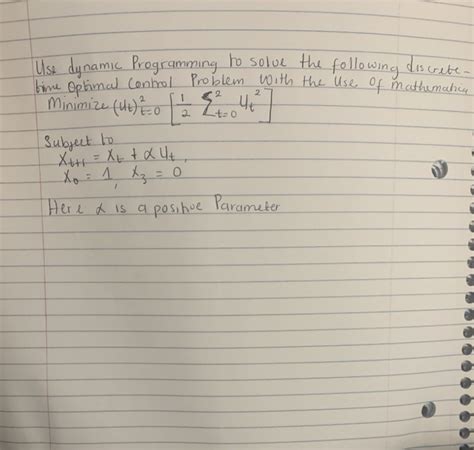 Use dynamic Programming to solve the following discrete-
time Optimal Control Problem With the Use of mathematica
Minimize (Ut)²t=0 [1/2 Σ²t=0 Ut²]
Subject to
Xt+1 = Xt + α Ut,
X0 = 1, X3 = 0
Here α is a positive Parameter